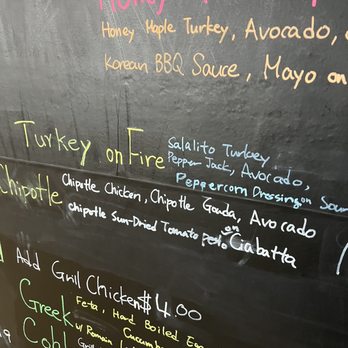 Honey
Honey Maple Turkey, Avocado,
Korean BBQ Sauce, Mayo on
Turkey on Fire
Salalito Turkey,
Pepper Jack, Avocado,
Peppercorn Dressing on Sour
Chipotle
Chipotle Chicken, Chipotle Gouda, Avocado
chipotle Sun-Dried Tomato pesto on Ciabatta
Add Grill Chicken $4.00
Greek
Feta, Hard Boiled Egg
w/ Romain
Cucumb
Cobb
Grill